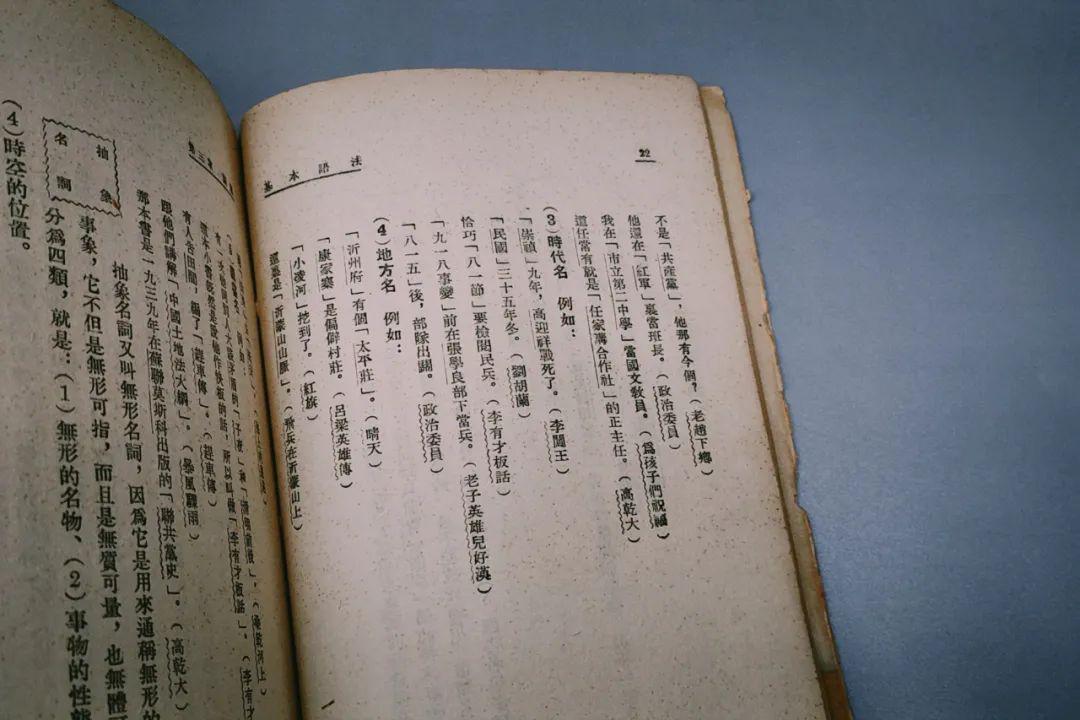 22
基本語法
不是「共產黨」,他那有今個?(老趙下鄉)
他還在「紅軍」裏當班長。(政治委員)
我在「市立第二中學」當國文教員。(爲孩子們祝福)
道任常有就是「任家溝合作社」的正主任。(高乾大)
(3)時代名 例如:
「崇禎」九年,高迎祥戰死了。(李闖王)
「民國」三十五年冬。(劉胡蘭)
恰巧「八一節」要檢閱民兵。(李有才板話)
「九一八事變」前在張學良部下當兵。(老子英雄兒好漢)
「八一五」後,部隊出關。(政治委員)
(4)地方名 例如:
「沂州府」有個「太平莊」。(晴天)
「康家寨」是偏僻村莊。(呂梁英雄傳)
「小凌河」到了。(紅旗)
是「沂蒙山山脈」。(飛兵在沂蒙山上)
第三章
所以叫做「李有才板話」。(李有才
有人去田間,編了「趕車傳」。(趕車傳)
跟他們講解「中國土地法大綱」。(暴風驟雨)
那本書是一九三九年在蘇聯莫斯科出版的「聯共黨史」。(高乾大)
抽象名詞
抽象名詞又叫無形名詞,因爲它是用來通稱無形的
事象,它不但是無形可指,而且是無質可量,也無體
分爲四類,就是:(1)無形的名物、(2)事物的性
(4)時空的位置。